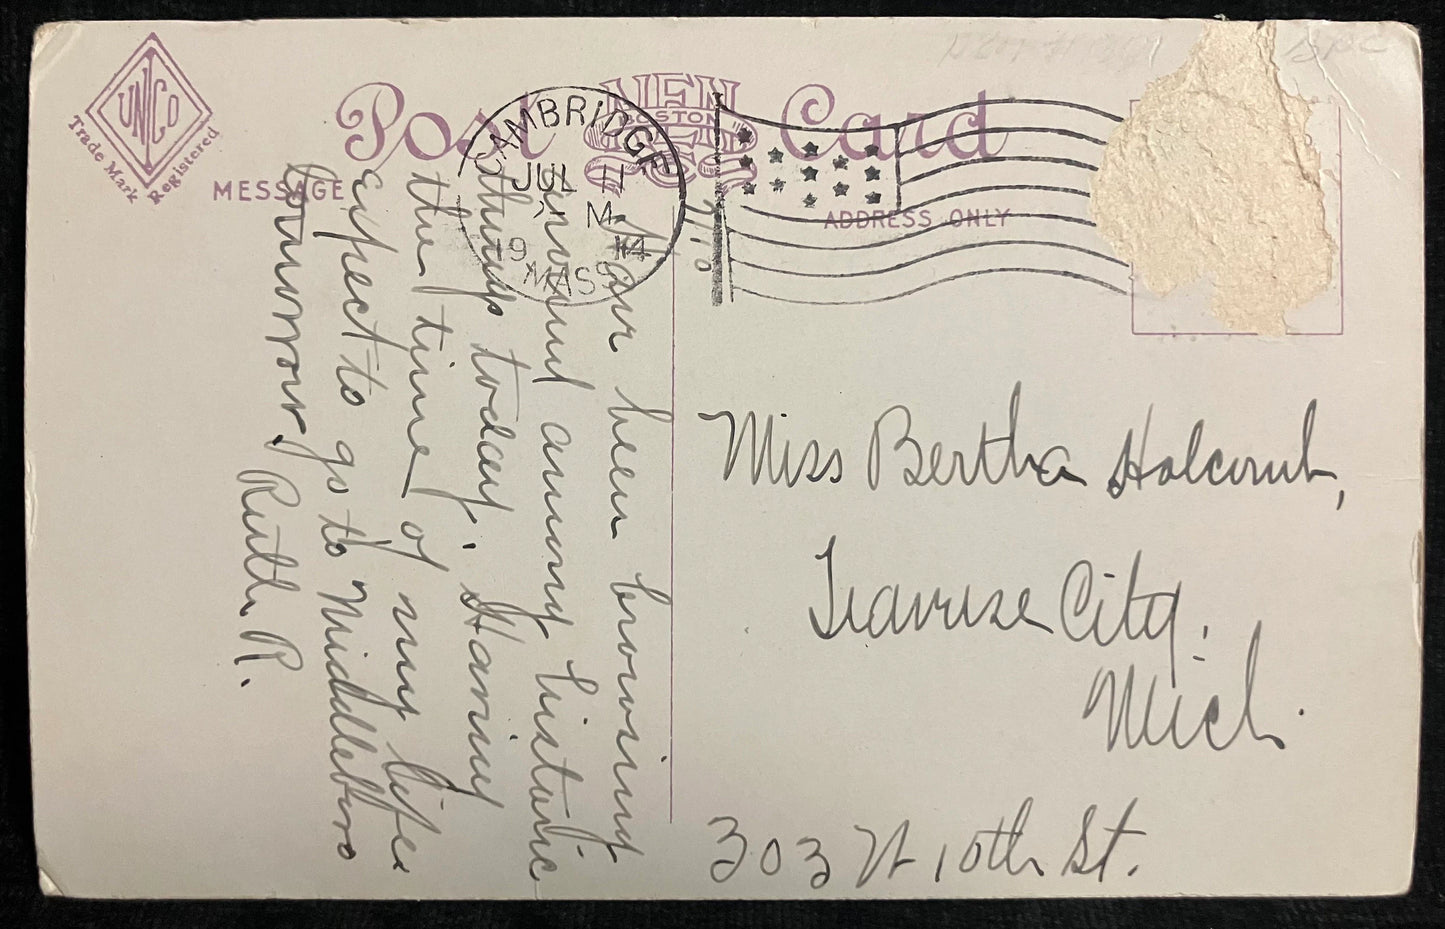 UNICO
Trade Mark Registered
Post Card
MESSAGE
ADDRESS ONLY
CAMBRIDGE
BOSTON
JUL 11
M
1914
MASS.
Have been browsing
around among historic
things today. Having
the time of my life.
expect to go to Middleboro
tomorrow.
Ruth R.
Miss Bertha Holcomb,
Traverse City,
Mich.
303 W 10th St.